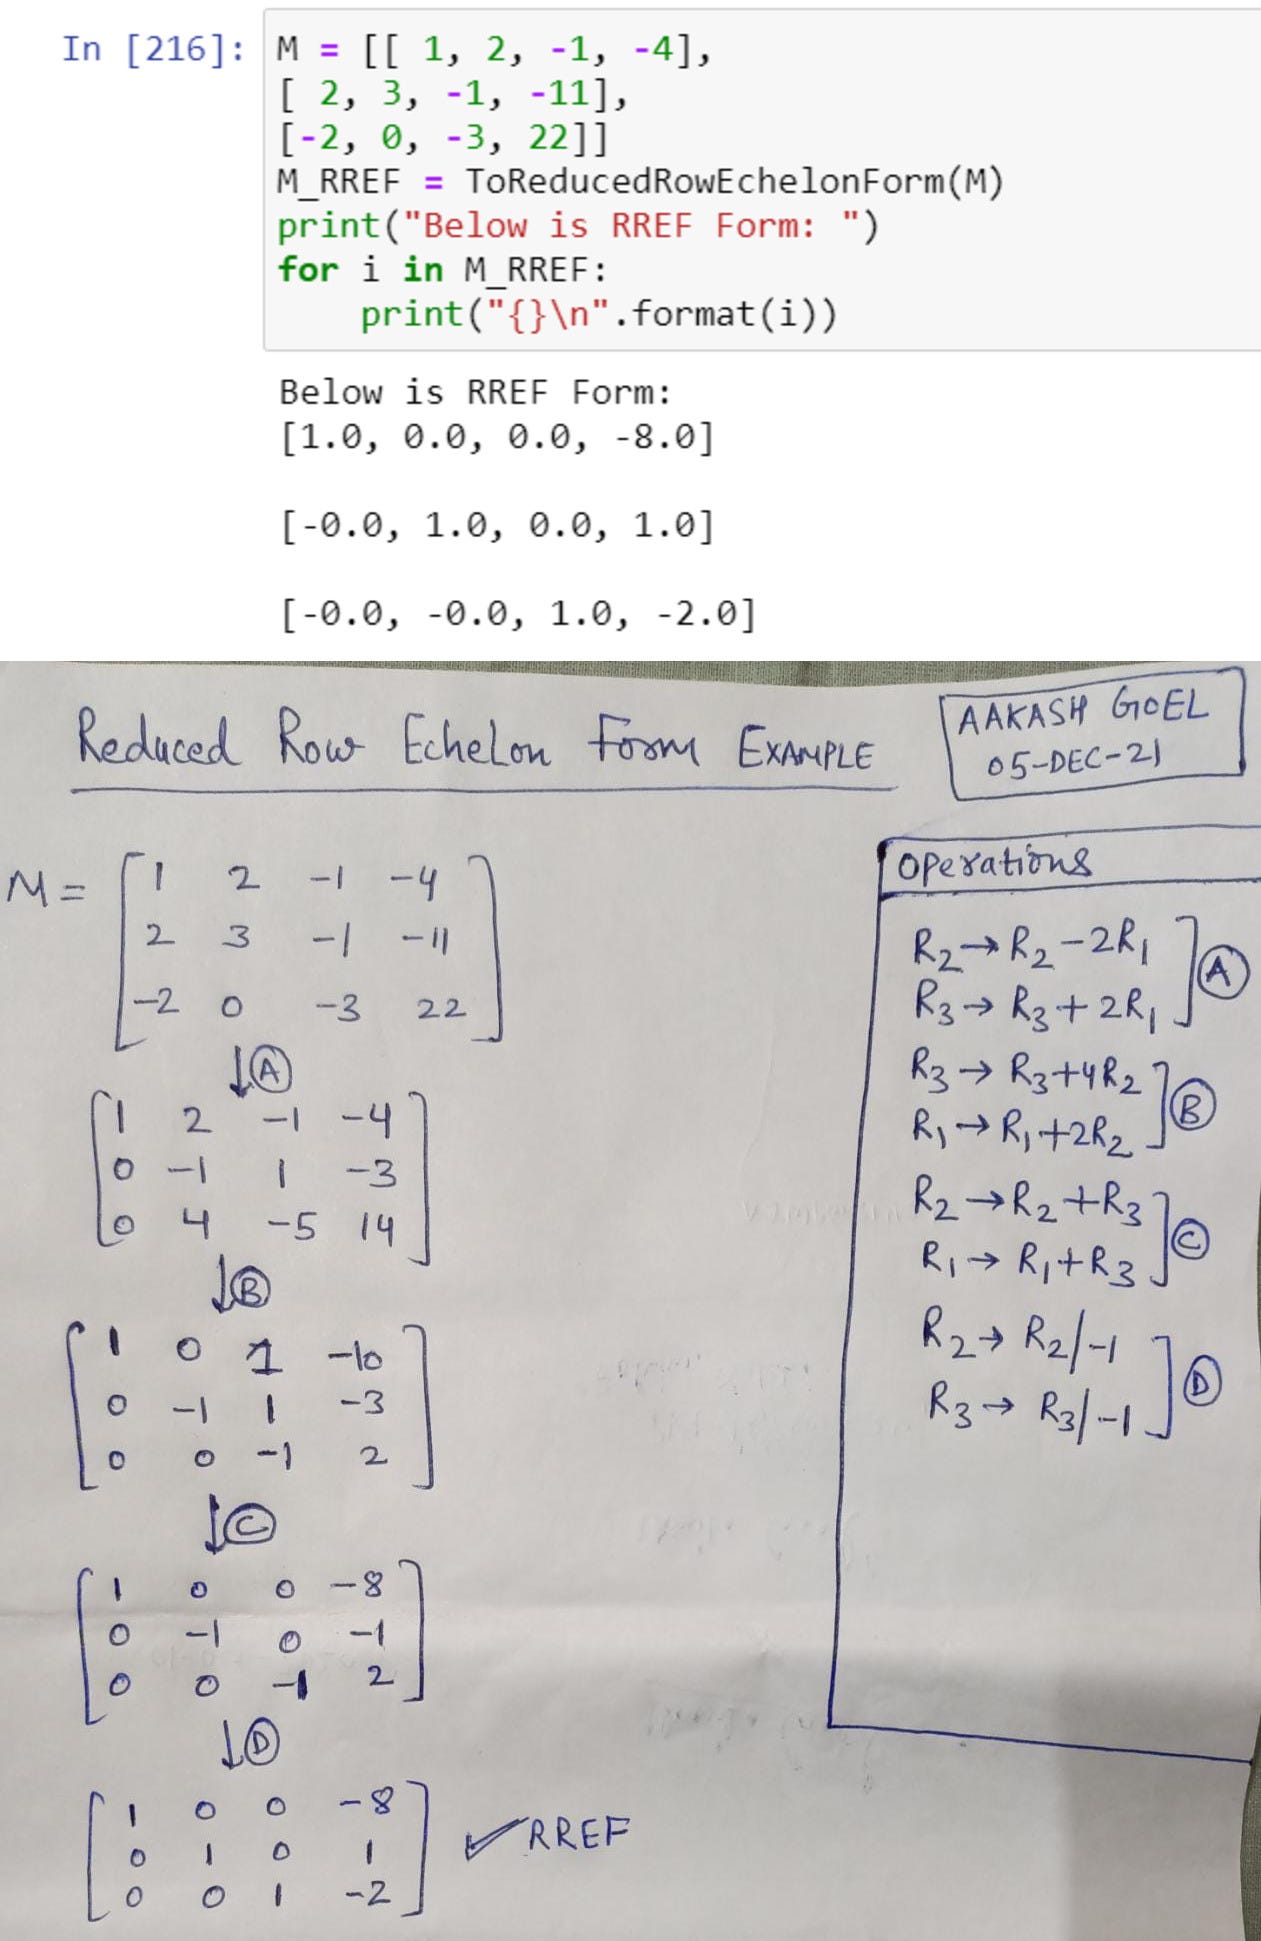 In [216]: M = [[ 1, 2, -1, -4],
[ 2, 3, -1, -11],
[-2, 0, -3, 22]]
M_RREF = ToReducedRowEchelonForm(M)
print("Below is RREF Form: ")
for i in M_RREF:
    print("{}\n".format(i))
Below is RREF Form:
[1.0, 0.0, 0.0, -8.0]
[-0.0, 1.0, 0.0, 1.0]
[-0.0, -0.0, 1.0, -2.0]
Reduced Row Echelon Form EXAMPLE
AAKASH GOEL
05-DEC-21
M =
1 2 -1 -4
2 3 -1 -11
-2 0 -3 22
↓ A
1 2 -1 -4
0 -1 1 -3
0 4 -5 14
↓ B
1 0 1 -10
0 -1 1 -3
0 0 -1 2
↓ C
1 0 0 -8
0 -1 0 -1
0 0 -1 2
↓ D
1 0 0 -8
0 1 0 1
0 0 1 -2
✓ RREF
Operations
R2 → R2 - 2R1
R3 → R3 + 2R1
A
R3 → R3 + 4R2
R1 → R1 + 2R2
B
R2 → R2 + R3
R1 → R1 + R3
C
R2 → R2/-1
R3 → R3/-1
D